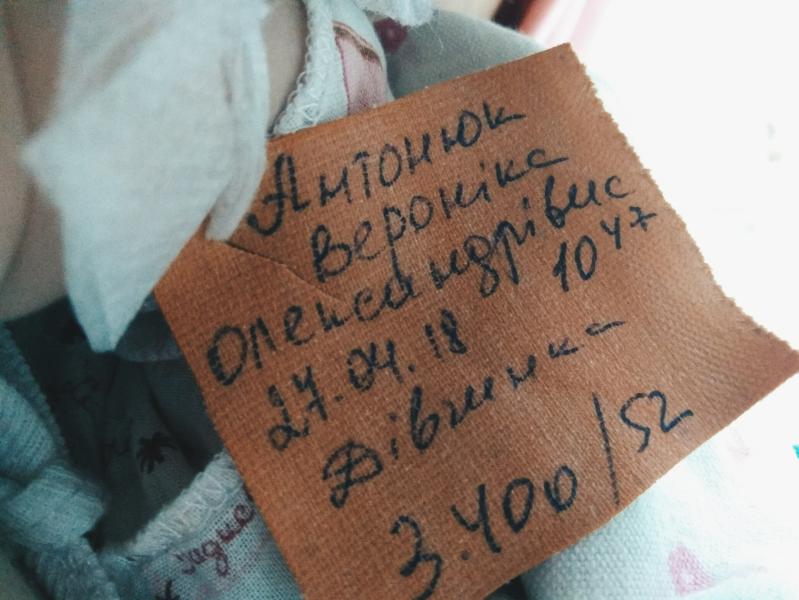 Антонюк
Вероніка
Олександрівна
27.04.18 10⁴⁷
Дівчинка
3.400/52